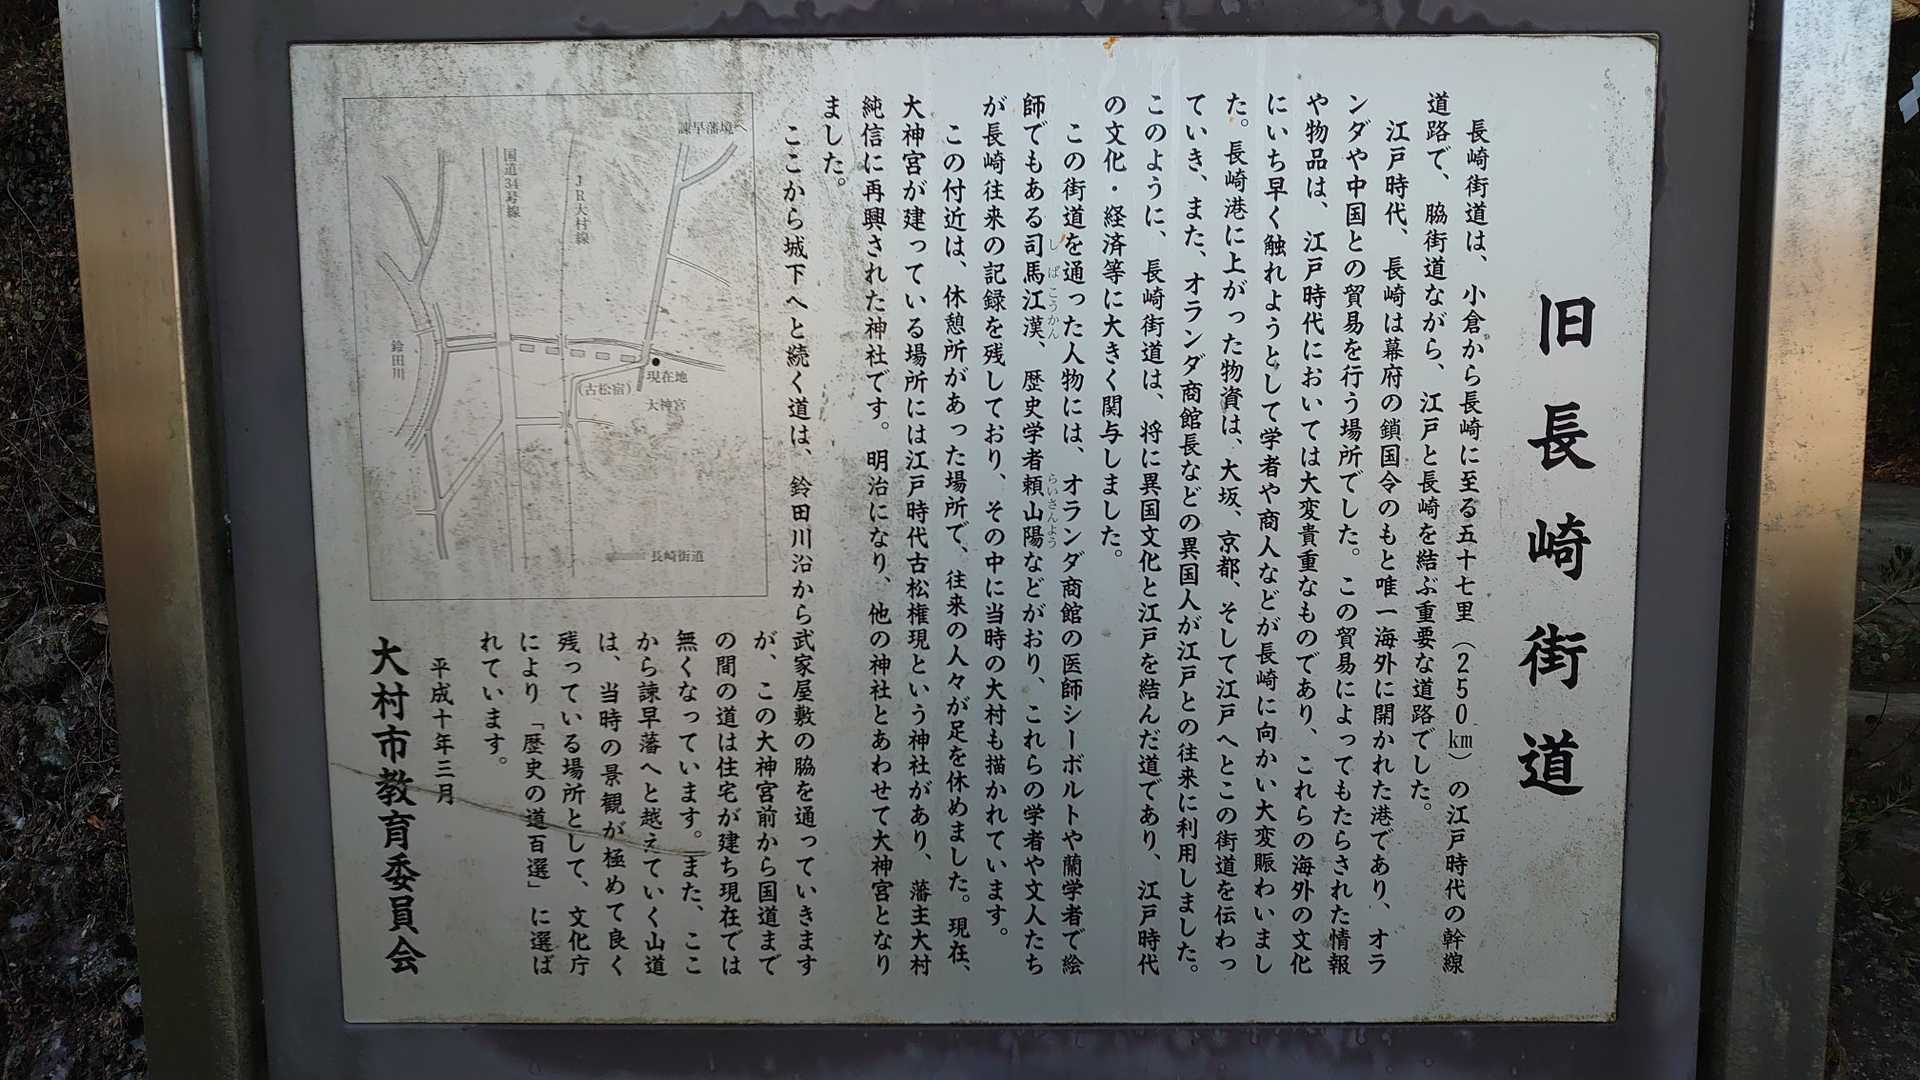 旧長崎街道
長崎街道は、小倉から長崎に至る五十七里（250km）の江戸時代の幹線
道路で、脇街道ながら、江戸と長崎を結ぶ重要な道路でした。
江戸時代、長崎は幕府の鎖国令のもと唯一海外に開かれた港であり、オラ
ンダや中国との貿易を行う場所でした。この貿易によってもたらされた情報
や物品は、江戸時代においては大変貴重なものであり、これらの海外の文化
にいち早く触れようとして学者や商人などが長崎に向かい大変賑わいまし
た。長崎港に上がった物資は、大坂、京都、そして江戸へとこの街道を伝わっ
ていき、また、オランダ商館長などの異国人が江戸との往来に利用しました。
このように、長崎街道は、将に異国文化と江戸を結んだ道であり、江戸時代
の文化・経済等に大きく関与しました。
この街道を通った人物には、オランダ商館の医師シーボルトや蘭学者で絵
師でもある司馬江漢、歴史学者頼山陽などがおり、これらの学者や文人たち
しばこうかん
らいさんよう
が長崎往来の記録を残しており、その中に当時の大村も描かれています。
この付近は、休憩所があった場所で、往来の人々が足を休めました。現在、
大神宮が建っている場所には江戸時代古松権現という神社があり、藩主大村
純信に再興された神社です。明治になり、他の神社とあわせて大神宮となり
ました。
ここから城下へと続く道は、鈴田川沿から武家屋敷の脇を通っています
が、この大神宮前から国道まで
の間の道は住宅が建ち現在では
無くなっています。また、ここ
から諫早藩へと越えていく山道
は、当時の景観が極めて良く
残っている場所として、文化庁
により「歴史の道百選」に選ば
れています。
平成十年三月
大村市教育委員会
諫早藩境へ
JR大村線
国道34号線
鈴田川
現在地
（古松宿）
大神宮
長崎街道